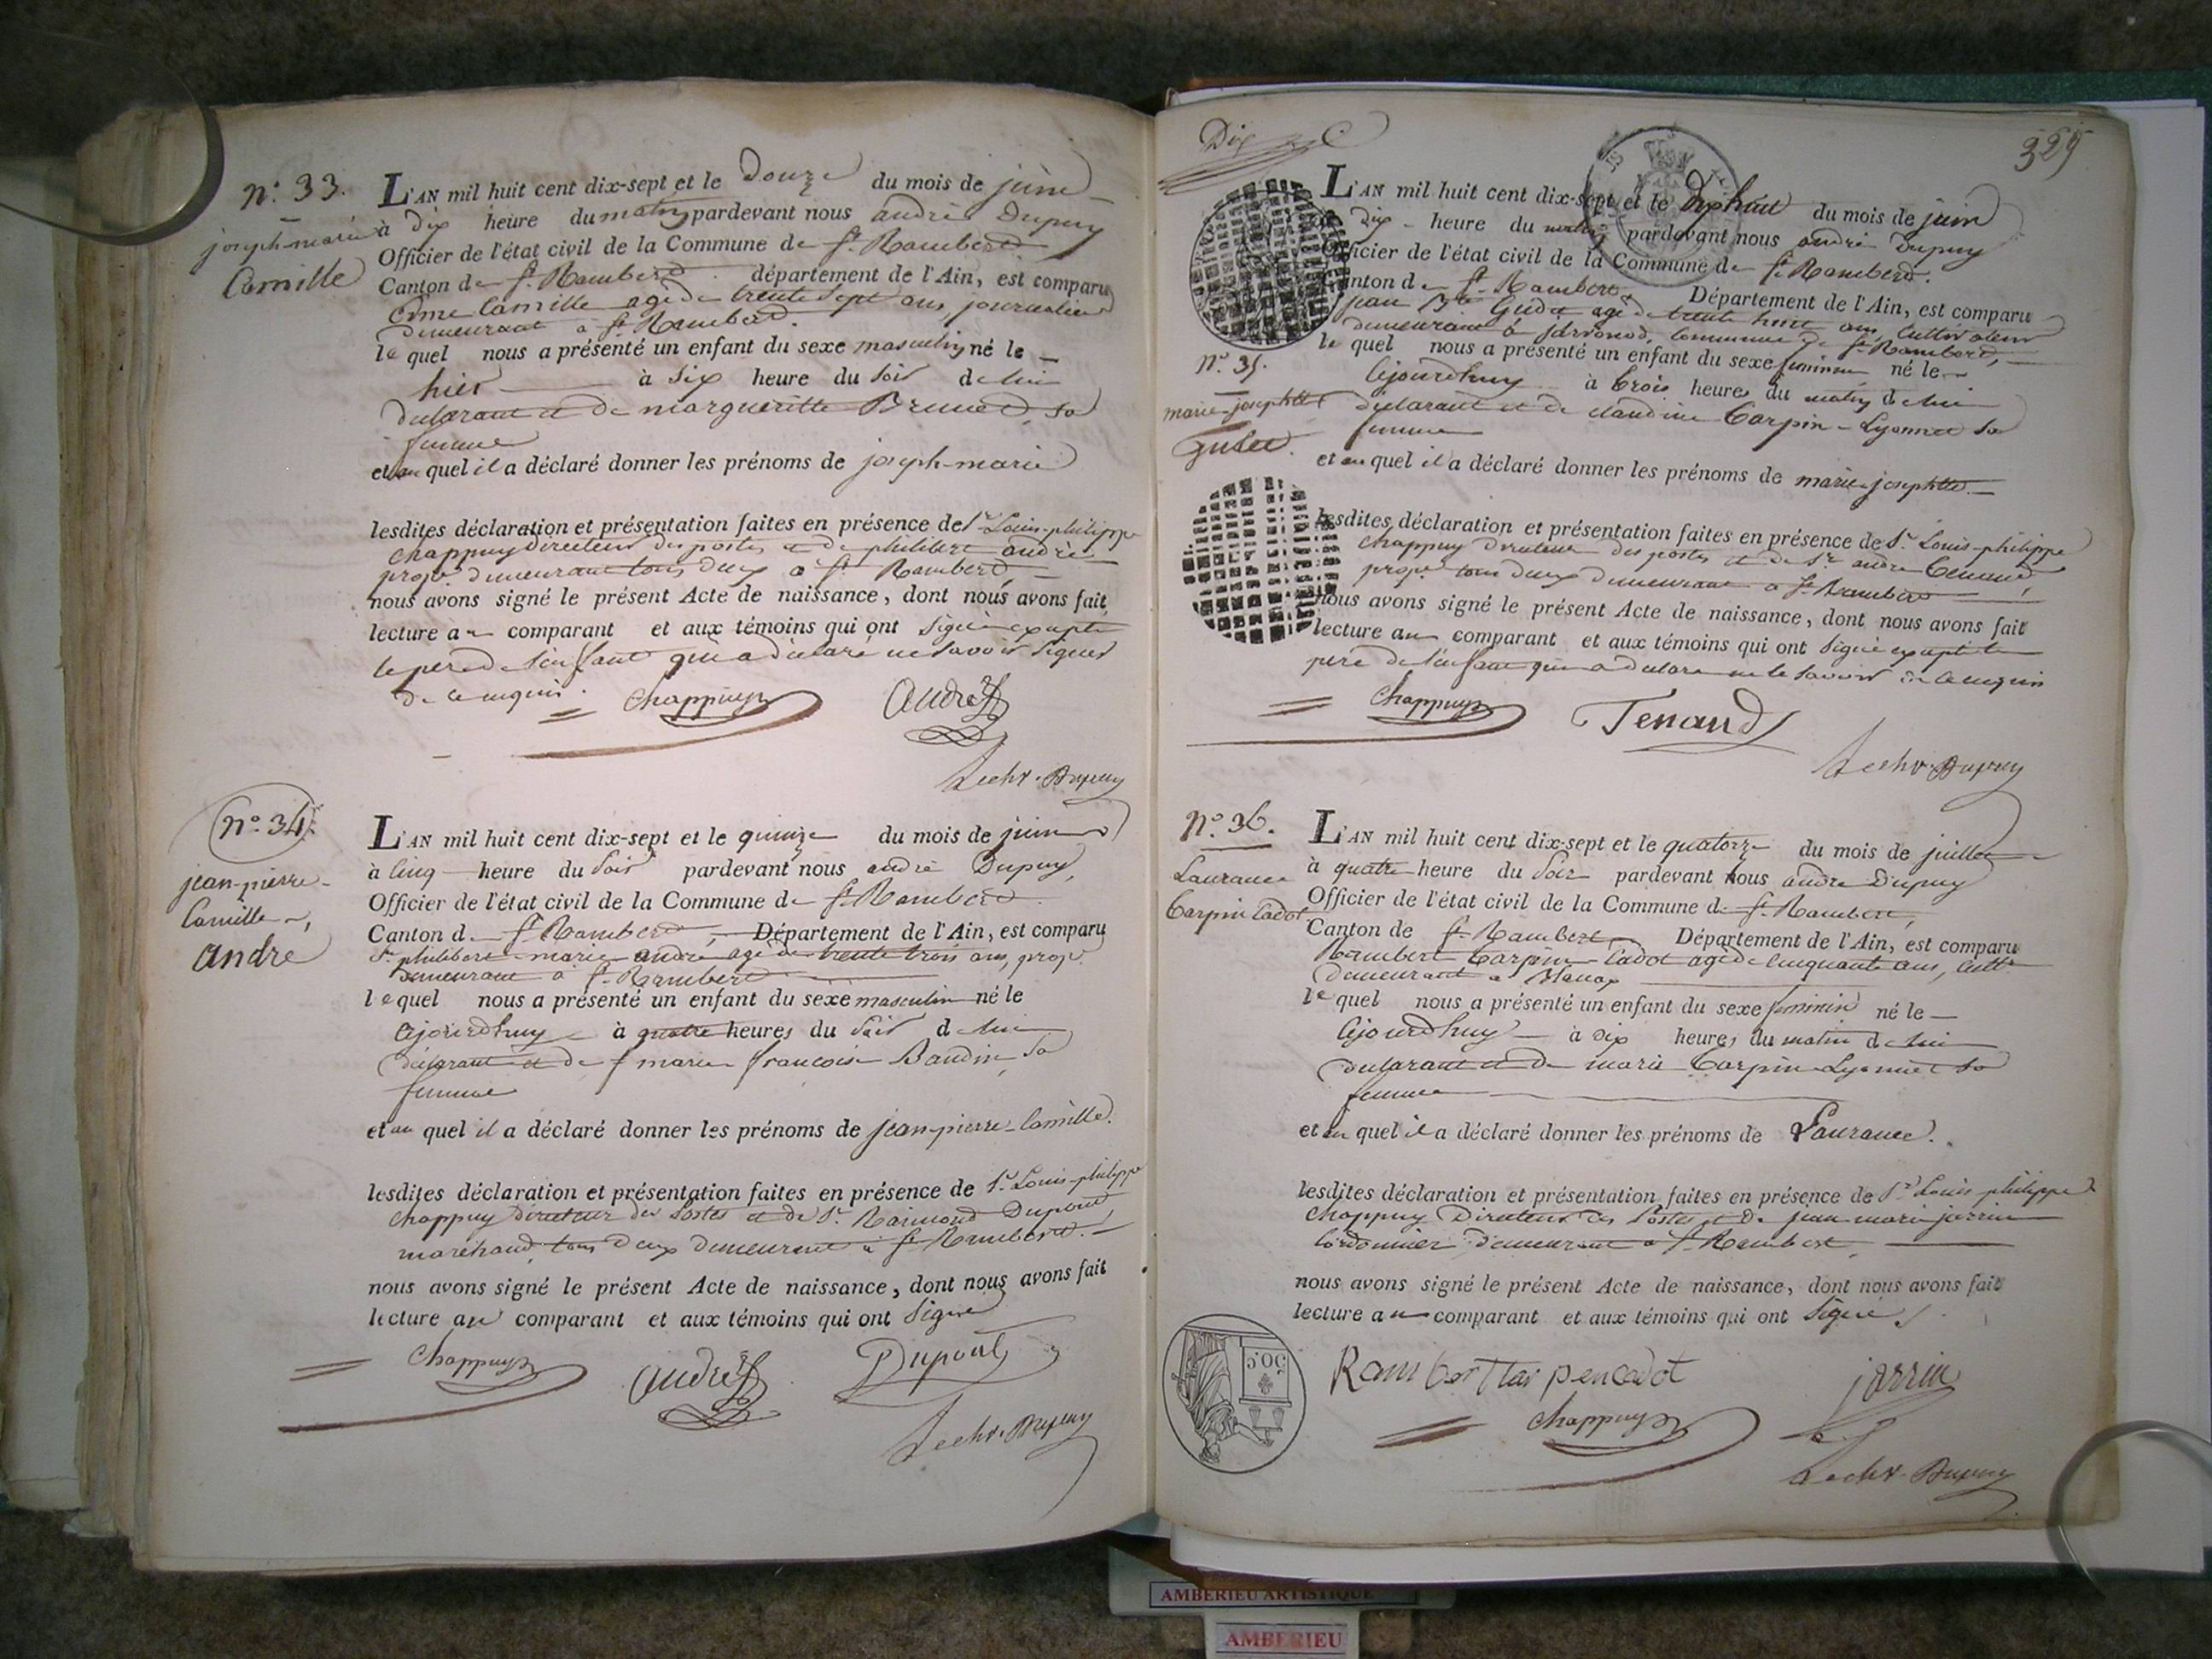 n.° 33.
joseph-marie
Camille
L'AN mil huit cent dix-sept et le Douze du mois de juin
à dix heure du matin pardevant nous andré Dupuy
Officier de l'état civil de la Commune de St Rambert
Canton de St Rambert département de l'Ain, est comparu
Cóme Camille agé de trente sept ans, journalier
demeurant à St Rambert.
lequel nous a présenté un enfant du sexe masculin né le
hier à six heure du soir de lui
declarant et de margueritte Brunet sa
femme
et au quel il a déclaré donner les prénoms de joseph-marie
lesdites déclaration et présentation faites en présence de Sr Louis-philippe
Chappuy directeur des postes et de philibert andré
prop.re demeurant tous deux à St Rambert
nous avons signé le présent Acte de naissance, dont nous avons fait
lecture au comparant et aux témoins qui ont signé excepté
le pere de l'enfant qui a declaré ne savoir signer
de ce requis.
Chappuy André
Dupuy
n.° 34.
jean-pierre-
Camille
andre
L'AN mil huit cent dix-sept et le quinze du mois de juin
à cinq heure du soir pardevant nous andré Dupuy,
Officier de l'état civil de la Commune de St Rambert
Canton de St Rambert, Département de l'Ain, est comparu
Sr philibert marie andré agé de trente trois ans, prop.re
demeurant à St Rambert
lequel nous a présenté un enfant du sexe masculin né le
Cejourd'huy à quatre heures du soir de lui
déclarant et de marie françoise Baudin sa
femme
et au quel il a déclaré donner les prénoms de jean-pierre-Camille.
lesdites déclaration et présentation faites en présence de Sr Louis-philippe
Chappuy directeur des Postes et de Sr Raimond Dupont,
marchand tous deux demeurant à St Rambert.
nous avons signé le présent Acte de naissance, dont nous avons fait
lecture au comparant et aux témoins qui ont signé
Chappuy André Dupont
Dupuy
Dix
329
n.° 35.
marie-josephte
Gudet.
L'AN mil huit cent dix-sept et le dix huit du mois de juin
à dix heure du matin pardevant nous andré Dupuy
Officier de l'état civil de la Commune de St Rambert.
Canton de St Rambert. Département de l'Ain, est comparu
jean Bte Gudet agé de trente huit ans, Cultivateur
demeurant à commune de St Rambert,
lequel nous a présenté un enfant du sexe feminin né le
Cejourd'huy à trois heures du matin de lui
déclarant et de claudine Carpin-Lyonnet sa
femme
et au quel il a déclaré donner les prénoms de marie josephte.
lesdites déclaration et présentation faites en présence de Sr Louis-philippe
Chappuy directeur des postes et de Sr andré Tenand,
prop.re tous deux demeurant à St Rambert
nous avons signé le présent Acte de naissance, dont nous avons fait
lecture au comparant et aux témoins qui ont signé excepté le
pere de l'enfant qui a declaré ne le savoir de ce requis
Chappuy Tenand
Dupuy
n.° 36.
Laurance
Carpin Cadot
L'AN mil huit cent dix-sept et le quatorze du mois de juillet
à quatre heure du soir pardevant nous andré Dupuy
Officier de l'état civil de la Commune de St Rambert,
Canton de St Rambert, Département de l'Ain, est comparu
Rambert Carpin-Cadot agé de cinquante ans, cult.r
demeurant à
lequel nous a présenté un enfant du sexe feminin né le
Cejourd'huy à dix heures du matin de lui
déclarant et de marie Carpin-Lyonnet sa
femme
et au quel il a déclaré donner les prénoms de Laurance.
lesdites déclaration et présentation faites en présence de Sr Louis philippe
Chappuy Directeur des Postes et de jean marie jarrin
Cordonnier demeurant à St Rambert,
nous avons signé le présent Acte de naissance, dont nous avons fait
lecture au comparant et aux témoins qui ont signé
50.C
Rambert Carpencadot jarrin
Chappuy
Dupuy
AMBERIEU ARTISTIQUE
AMBERIEU